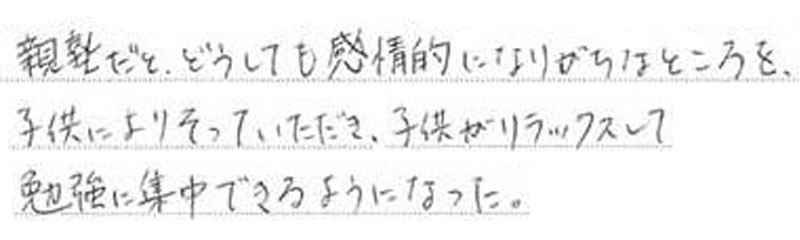 親塾だと、どうしても感情的になりがちなところを、
子供によりそっていただき、子供がリラックスして
勉強に集中できるようになった。